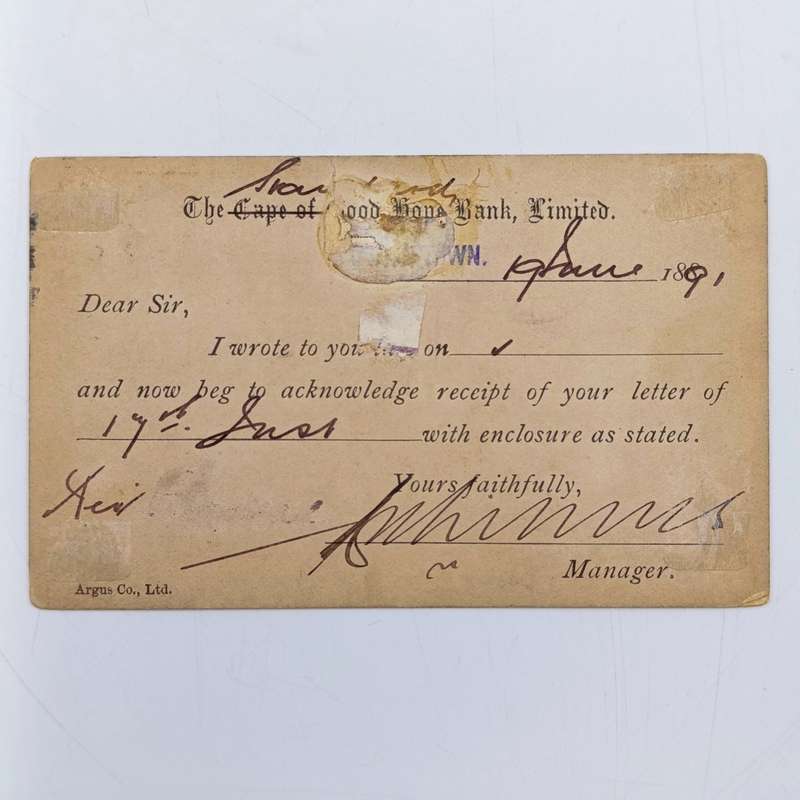 Standard
The Cape of Good Hope Bank, Limited.
WN. 19 June 1891
Dear Sir,
I wrote to you last on
and now beg to acknowledge receipt of your letter of
17th. Inst with enclosure as stated.
Yours faithfully,
Manager.
Argus Co., Ltd.